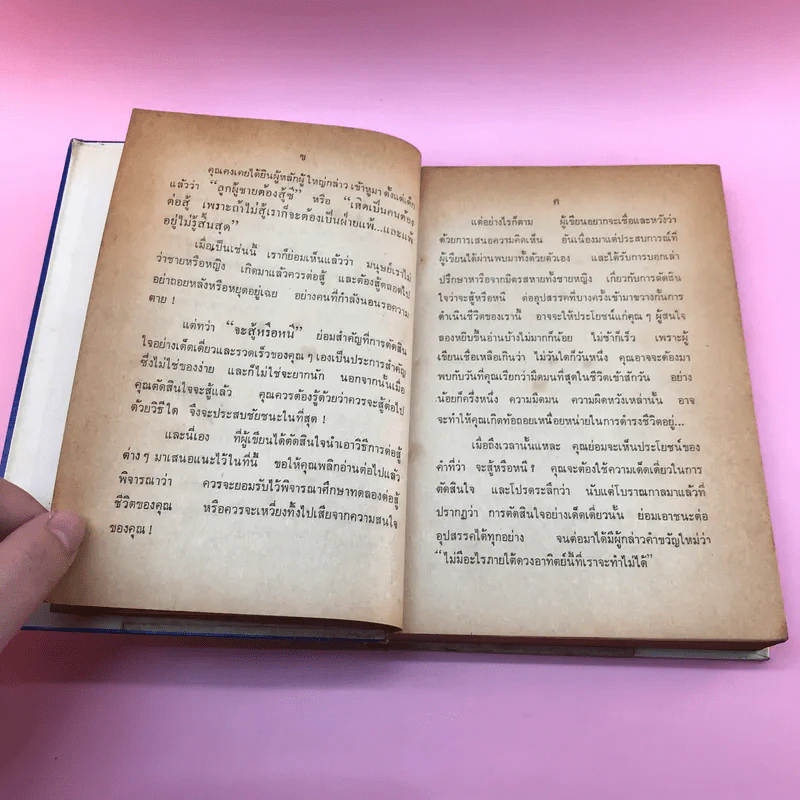 ข
คุณคงเคยได้ยินผู้หลักผู้ใหญ่กล่าว เข้าหูมา ตั้งแต่เด็ก
แล้วว่า “ลูกผู้ชายต้องสู้ซี” หรือ “เกิดเป็นคนต้อง
ต่อสู้ เพราะถ้าไม่สู้เราก็จะต้องเป็นฝ่ายแพ้...และแพ้
อยู่ไม่รู้สิ้นสุด”
เมื่อเป็นเช่นนี้ เราก็ย่อมเห็นแล้วว่า มนุษย์เราไม่
ว่าชายหรือหญิง เกิดมาแล้วควรต่อสู้ และต้องสู้ตลอดไป
อย่าถอยหลังหรือหยุดอยู่เฉย อย่างคนที่กำลังนอนรอความ
ตาย !
แต่ทว่า “จะสู้หรือหนี” ย่อมสำคัญที่การตัดสิน
ใจอย่างเด็ดเดี่ยวและรวดเร็วของคุณ ๆ เองเป็นประการสำคัญ
ซึ่งไม่ใช่ของง่าย และก็ไม่ใช่จะยากนัก นอกจากนั้นเมื่อ
คุณตัดสินใจจะสู้แล้ว คุณควรต้องรู้ด้วยว่าควรจะสู้ต่อไป
ด้วยวิธีใด จึงจะประสบชัยชนะในที่สุด !
และนี่เอง ที่ผู้เขียนได้ตัดสินใจนำเอาวิธีการต่อสู้
ต่างๆ มาเสนอแนะไว้ในที่นี้ ขอให้คุณพลิกอ่านต่อไปแล้ว
พิจารณาว่า ควรจะยอมรับไว้พิจารณาศึกษาทดลองต่อสู้
ชีวิตของคุณ หรือควรจะเหวี่ยงทิ้งไปเสียจากความสนใจ
ของคุณ !
ค
แต่อย่างไรก็ตาม ผู้เขียนอยากจะเชื่อและหวังว่า
ด้วยการเสนอความคิดเห็น อันเนื่องมาแต่ประสบการณ์ที่
ผู้เขียนได้ผ่านพบมาทั้งด้วยตัวเอง และได้รับการบอกเล่า
ปรึกษาหารือจากมิตรสหายทั้งชายหญิง เกี่ยวกับการตัดสิน
ใจว่าจะสู้หรือหนี ต่ออุปสรรคที่บางครั้งเข้ามาขวางกั้นการ
ดำเนินชีวิตของเรานี้ อาจจะให้ประโยชน์แก่คุณ ๆ ผู้สนใจ
ลองหยิบขึ้นอ่านบ้างไม่มากก็น้อย ไม่ช้าก็เร็ว เพราะผู้
เขียนเชื่อเหลือเกินว่า ไม่วันใดก็วันหนึ่ง คุณอาจจะต้องมา
พบกับวันที่คุณเรียกว่ามืดมนที่สุดในชีวิตเข้าสักวัน อย่าง
น้อยก็ครั้งหนึ่ง ความมืดมน ความผิดหวังเหล่านั้น อาจ
จะทำให้คุณเกิดท้อถอยเหนื่อยหน่ายในการดำรงชีวิตอยู่...
เมื่อถึงเวลานั้นแหละ คุณย่อมจะเห็นประโยชน์ของ
คำที่ว่า จะสู้หรือหนี ? คุณจะต้องใช้ความเด็ดเดี่ยวในการ
ตัดสินใจ และโปรดระลึกว่า นับแต่โบราณกาลมาแล้วที่
ปรากฏว่า การตัดสินใจอย่างเด็ดเดี่ยวนั้น ย่อมเอาชนะต่อ
อุปสรรคได้ทุกอย่าง จนต่อมาได้มีผู้กล่าวคำขวัญใหม่ว่า
“ไม่มีอะไรภายใต้ดวงอาทิตย์นี้ที่เราจะทำไม่ได้”